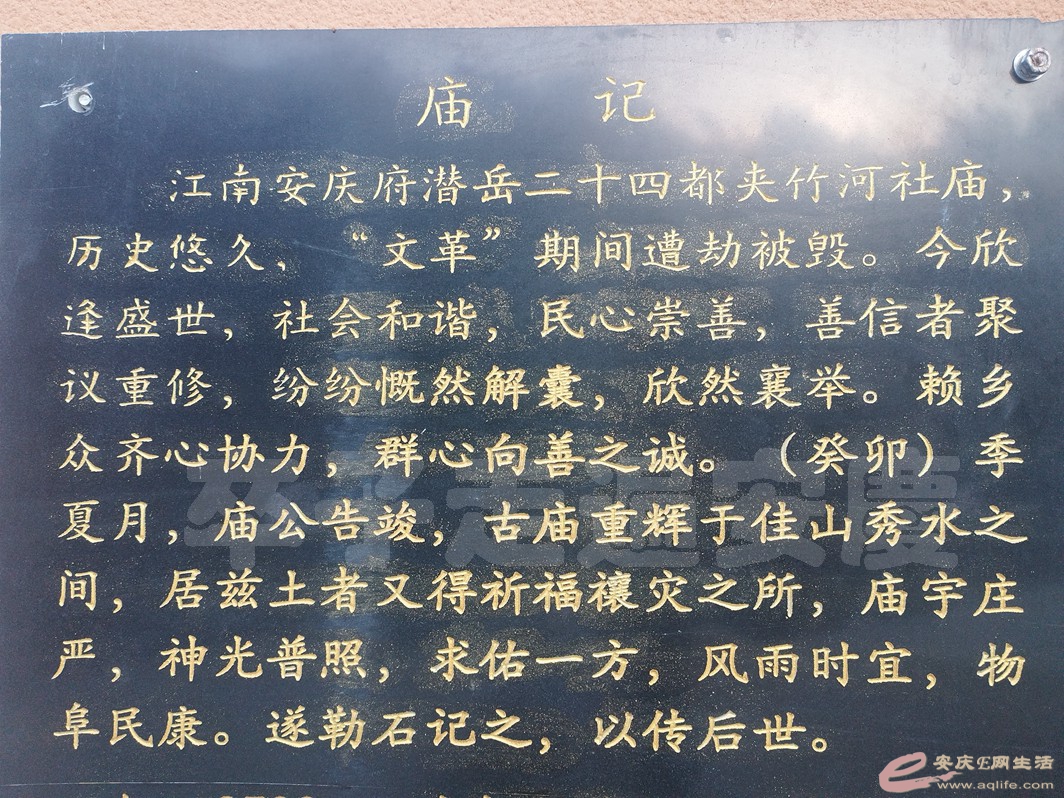 庙 记
江南安庆府潜岳二十四都夹竹河社庙，
历史悠久，“文革”期间遭劫被毁。今欣
逢盛世，社会和谐，民心崇善，善信者聚
议重修，纷纷慨然解囊，欣然襄举。赖乡
众齐心协力，群心向善之诚。（癸卯）季
夏月，庙公告竣，古庙重辉于佳山秀水之
间，居兹土者又得祈福禳灾之所，庙宇庄
严，神光普照，求佑一方，风雨时宜，物
阜民康。遂勒石记之，以传后世。
卒子走遍安慶
安庆E网生活
www.aqlife.com